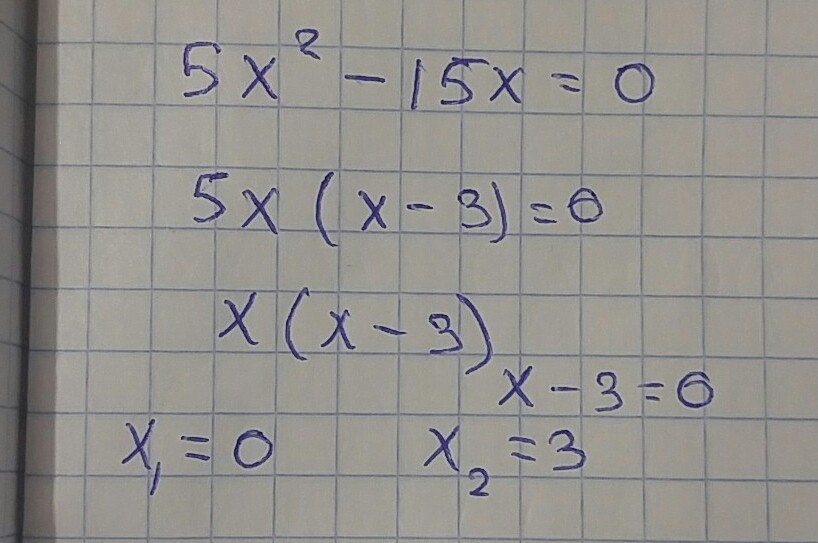 5x² - 15x = 0
5x (x - 3) = 0
x (x - 3)
x - 3 = 0
x₁ = 0 x₂ = 3